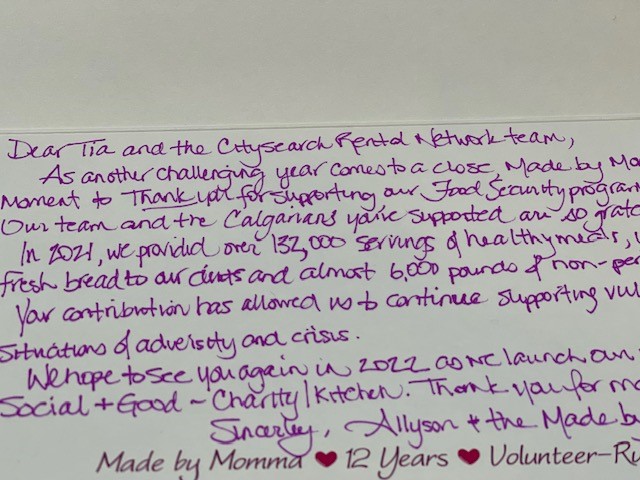 Dear Tia and the Citysearch Rental Network team,
As another challenging year comes to a close, Made by Mo
Moment to Thank you for supporting our Food Security program
Our team and the Calgarians you've supported are so grate
In 2021, we provided over 132,000 servings of healthy meals,
fresh bread to our clients and almost 6,000 pounds of non-per
Your contribution has allowed us to continue supporting vul
situations of adversity and crisis.
We hope to see you again in 2022 as we launch our
Social + Good ~ Charity | Kitchen. Thank you for ma
Sincerley, Allyson + the Made by
Made by Momma ♥ 12 Years ♥ Volunteer-Ru